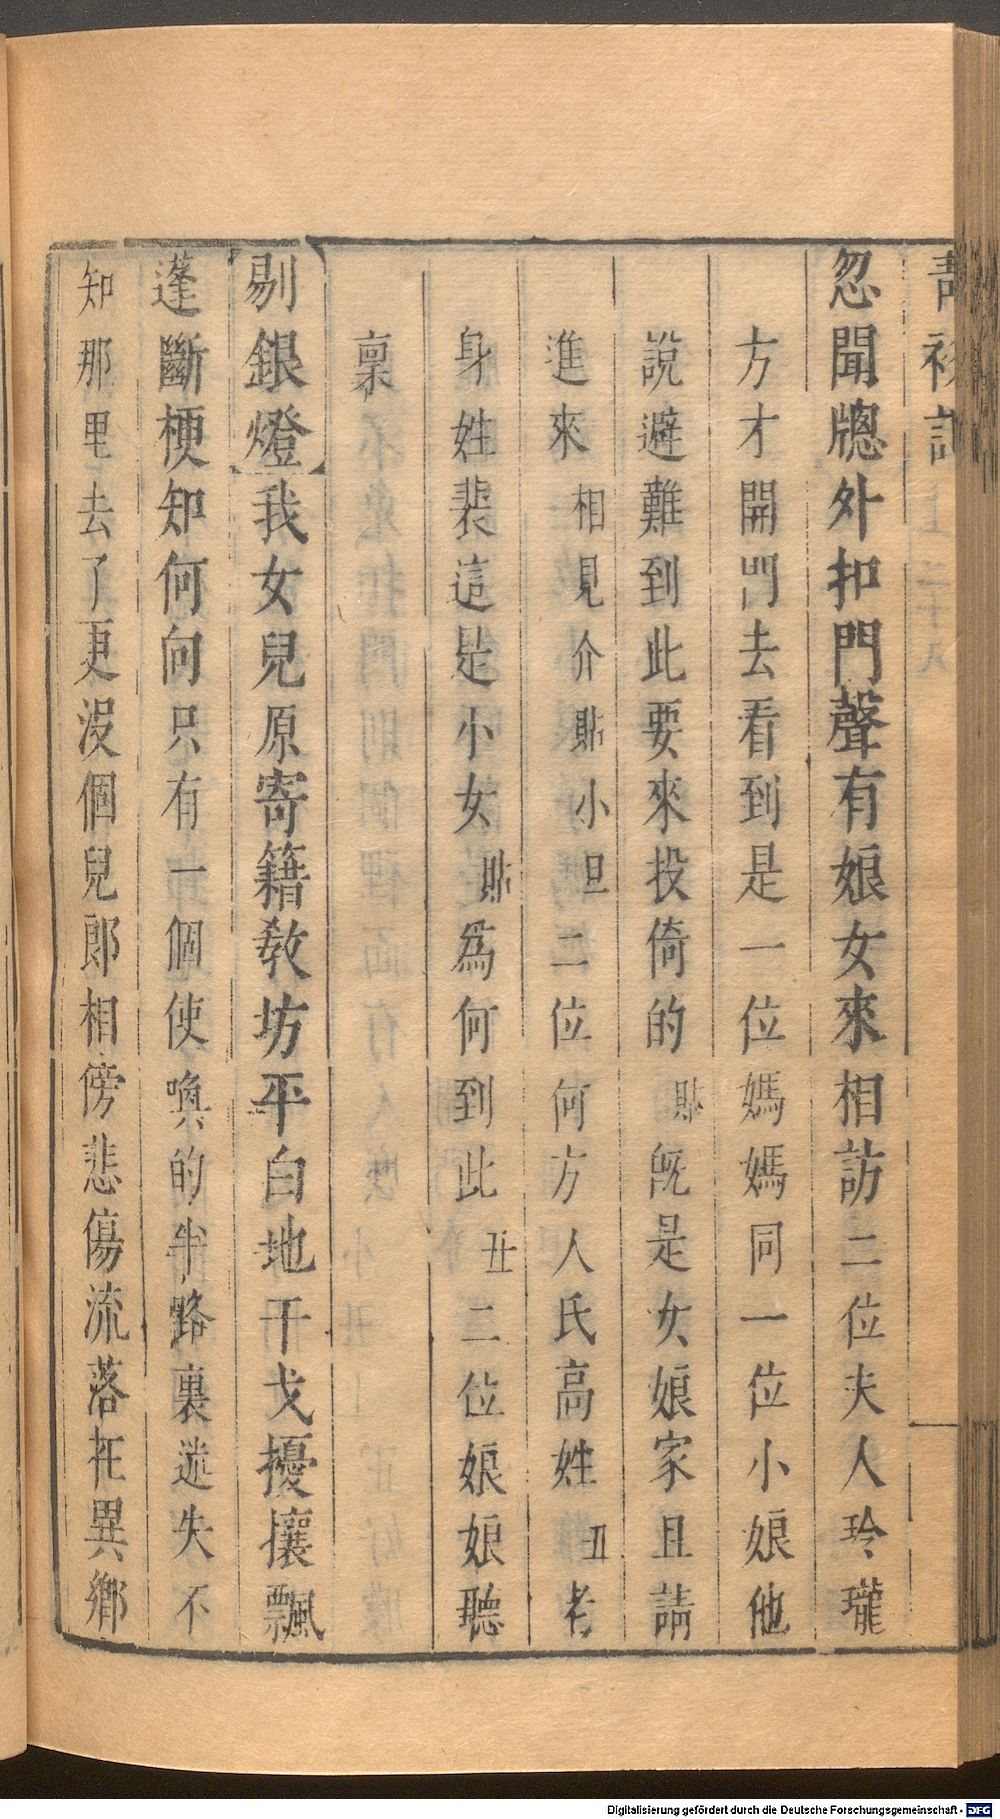 忽聞牕外扣門聲有娘女來相訪二位夫人玲瓏
方才開門去看到是一位媽媽同一位小娘他
說避難到此要來投倚的貼旣是女娘家且請
進來相見介貼小旦二位何方人氏高姓丑老
身姓裴這是小女貼為何到此丑二位娘娘聽
稟
剔銀燈我女兒原寄籍教坊平白地干戈擾攘飄
蓬斷梗知何向只有一個使喚的半路裏迯失不
知那里去了更没個兒郎相傍悲傷流落在異鄉
Digitalisierung gefördert durch die Deutsche Forschungsgemeinschaft - DFG